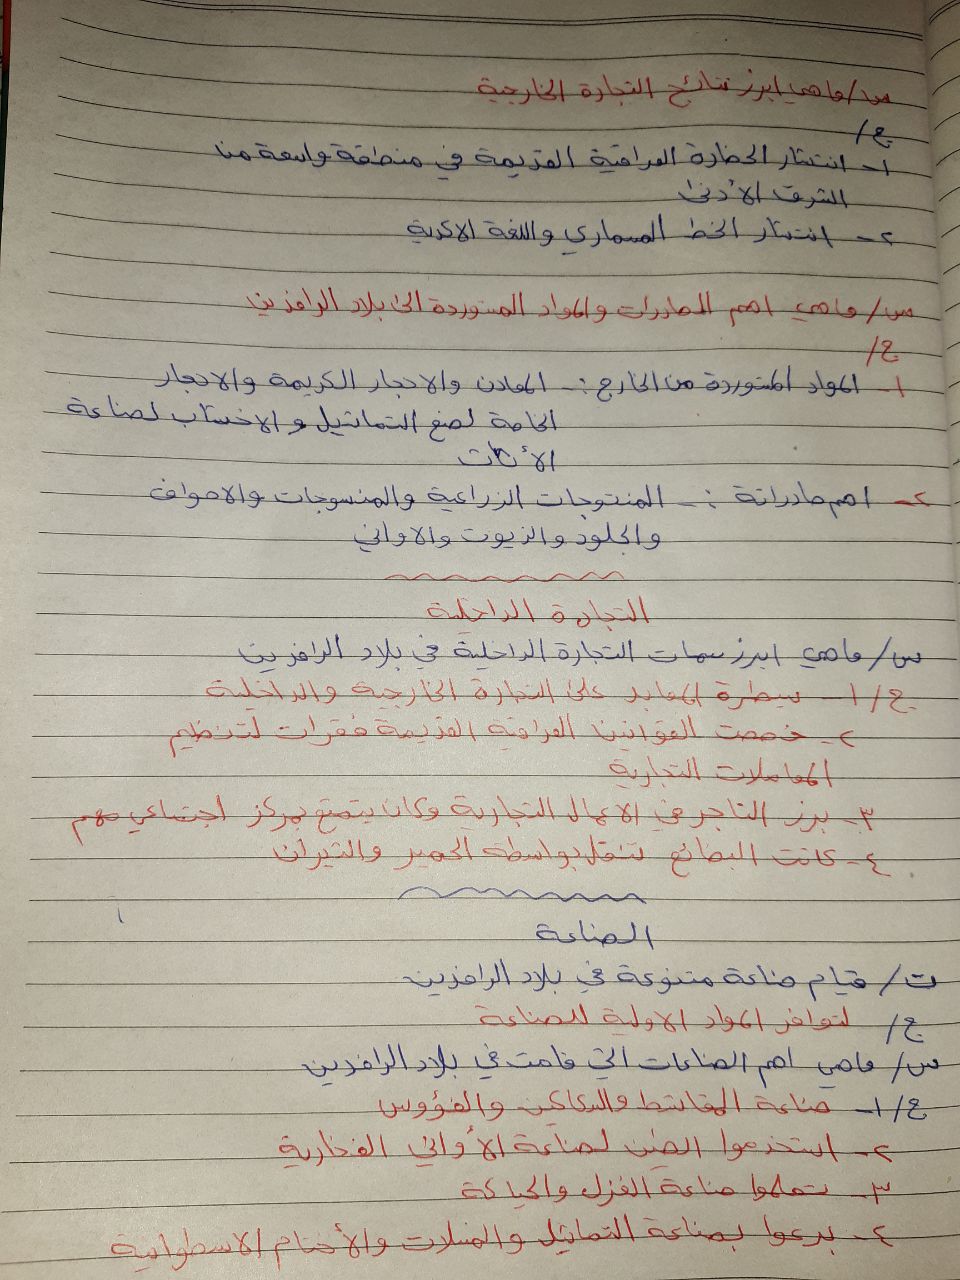 س/ ماهي ابرز نتائج التجارة الخارجية
ج/
١- انتشار الحضارة العراقية القديمة في منطقة واسعة من
الشرق الأدنى
٢- انتشار الخط المسماري واللغة الاكدية
س/ ماهي اهم الصادرات والمواد المستوردة الى بلاد الرافدين
ج/
١- المواد المستوردة من الخارج :- المعادن والاحجار الكريمة والاحجار
الخاصة لصنع التماثيل والاخشاب لصناعة
الأثاث
٢- اهم صادراتة :- المنتوجات الزراعية والمنسوجات والاصواف
والجلود والزيوت والاواني
التجارة الداخلية
س/ ماهي ابرز سمات التجارة الداخلية في بلاد الرافدين
ج/ ١- سيطرة المعابد على التجارة الخارجية والداخلية
٢- خصصت القوانين العراقية القديمة فقرات لتنظيم
المعاملات التجارية
٣- برز التاجر في الاعمال التجارية وكان يتمتع بمركز اجتماعي مهم
٤- كانت البضائع تنقل بواسطة الحمير والثيران
الصناعة
ت/ قيام صناعة متنوعة في بلاد الرافدين
ج/ لتوافر المواد الاولية للصناعة
س/ ماهي اهم الصناعات التي قامت في بلاد الرافدين
ج/ ١- صناعة المقاشط والسكاكين والفؤوس
٢- استخدموا الطين لصناعة الأواني الفخارية
٣- تعلموا صناعة الغزل والحياكة
٤- برعوا بصناعة التماثيل والمسلات والأختام الاسطوانية